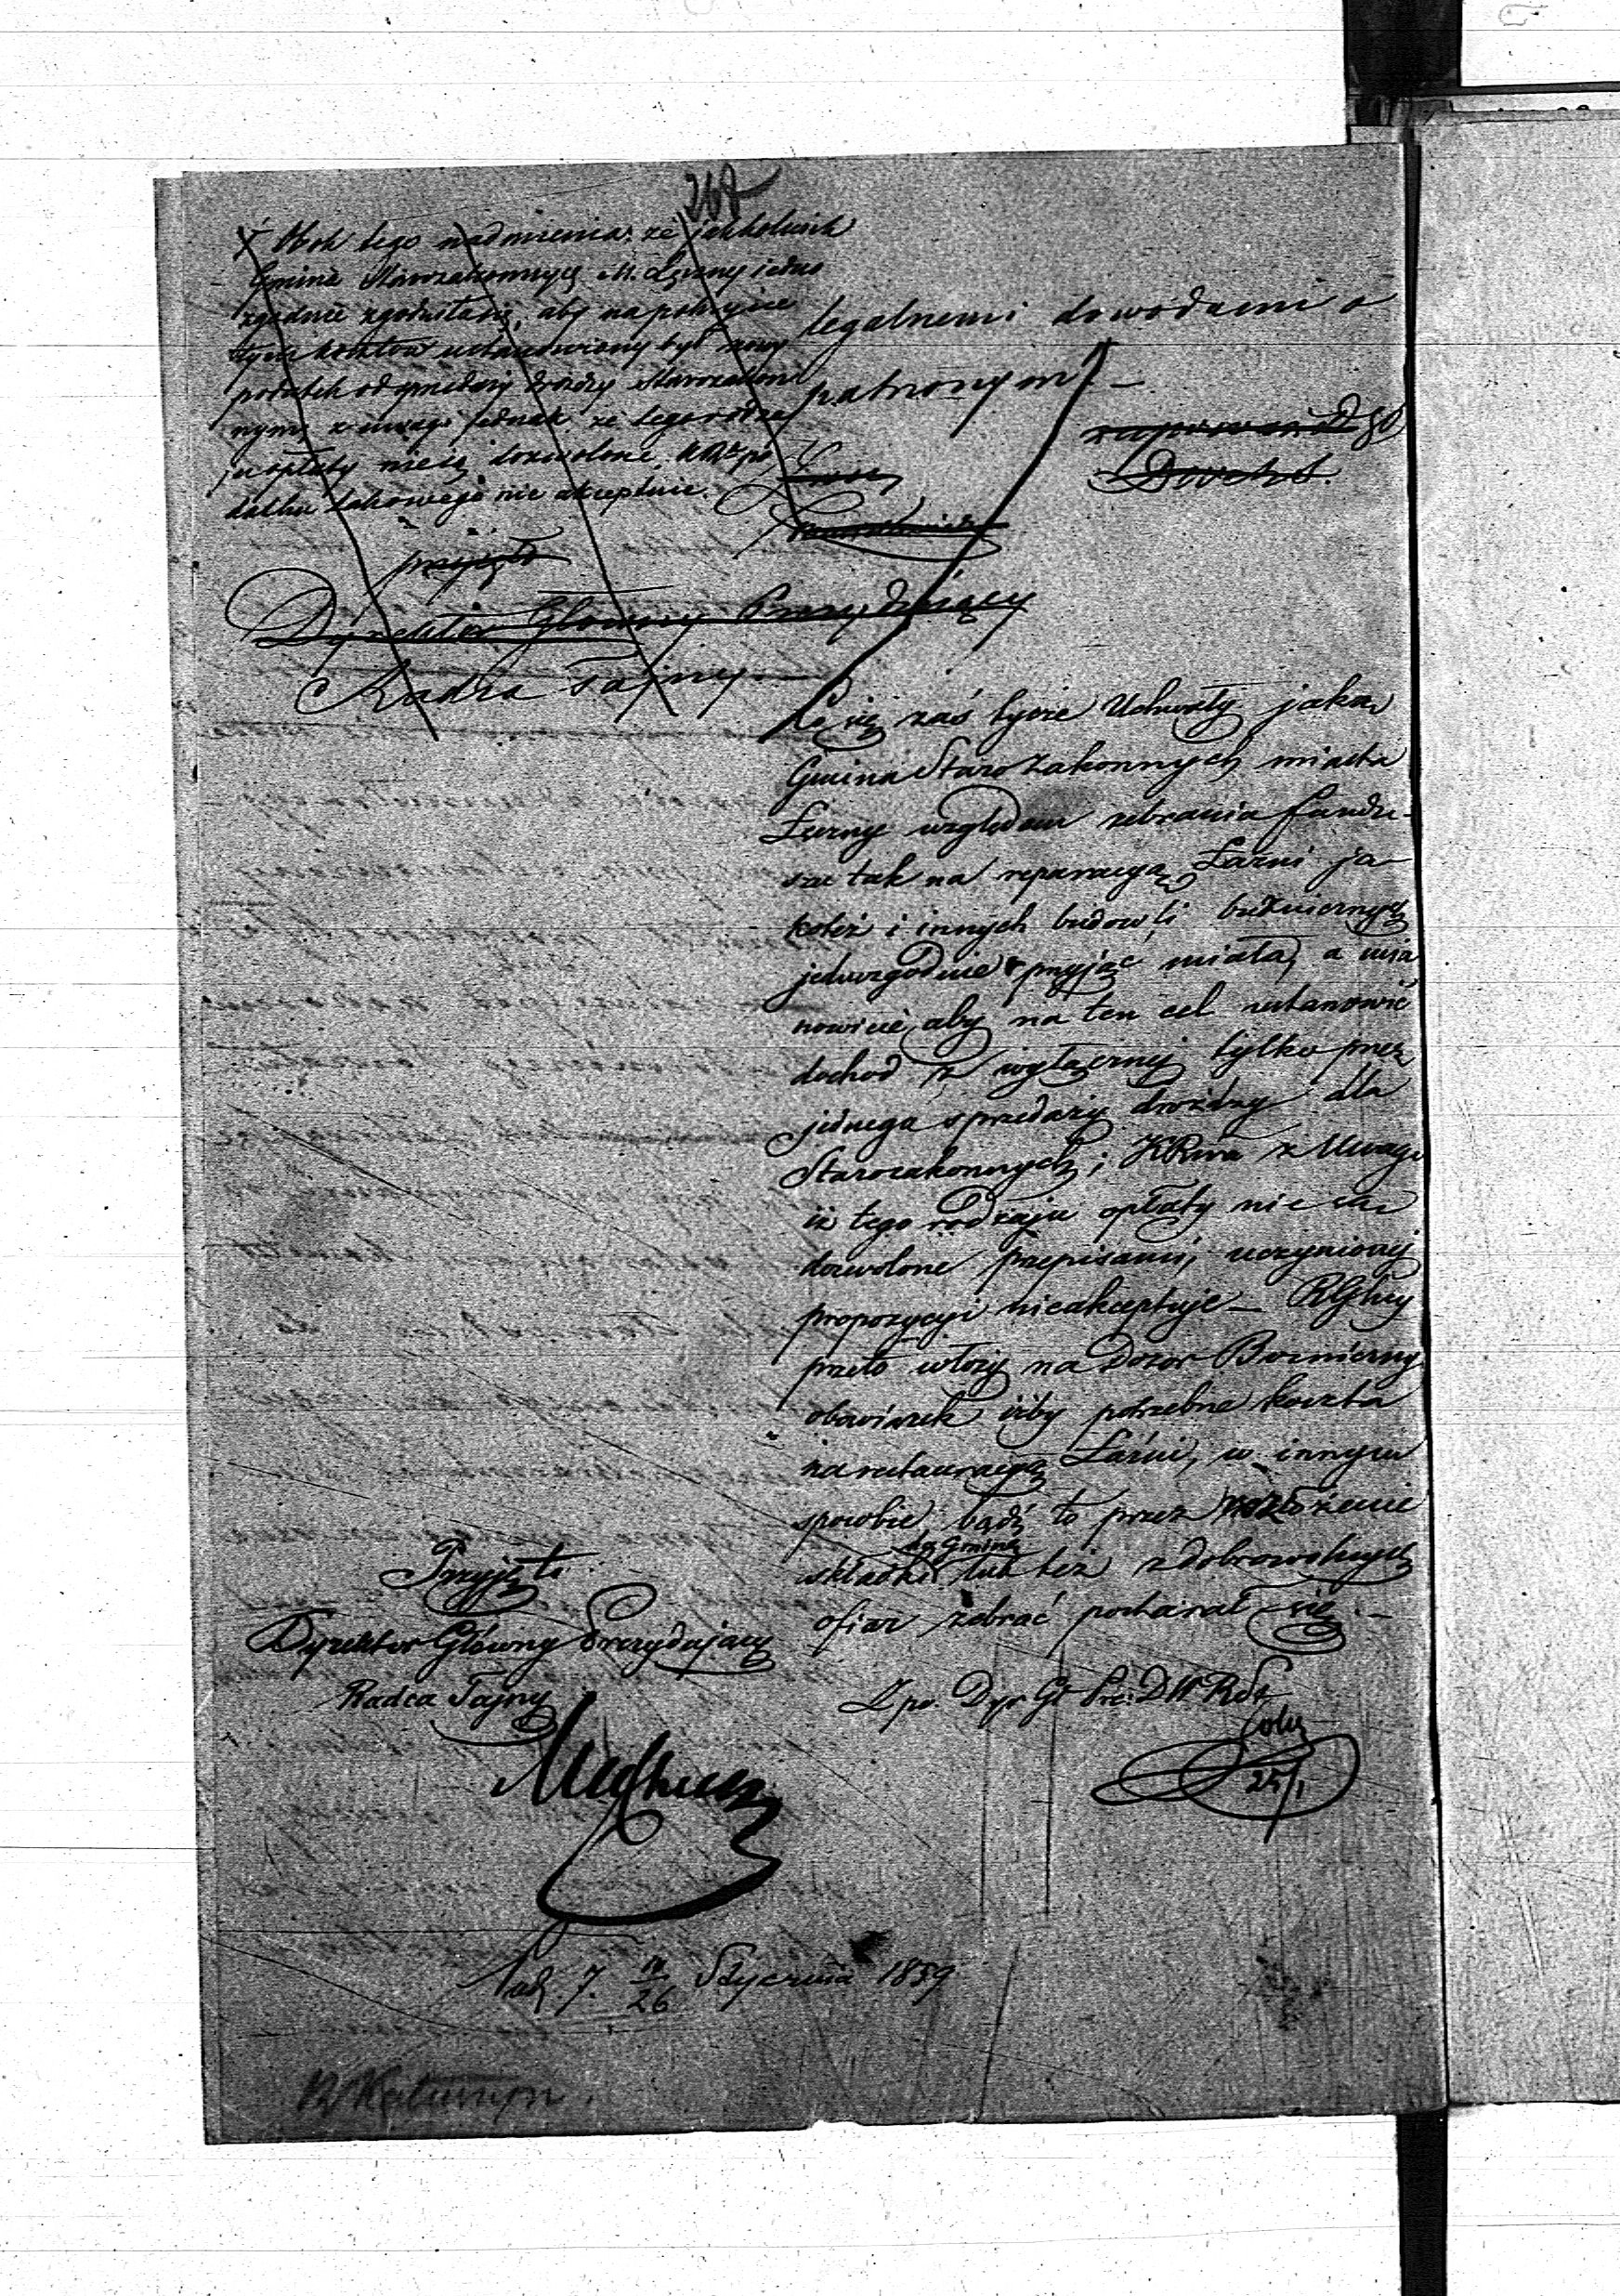 268
Obok tego nadmienia: że jakkolwiek
Gmina Starozakonnych M. Łęczny jedno
zgodnie zgodziła się, aby na pokrycie
tych kosztów ustanowiony był nowy
podatek od sprzedaży drożdży Starozakon
nym, z uwagi jednak że tego rodza
ju opłaty nie są dozwolone, KRzą po
datku takowego nie akceptuje.
przyjęto
Dyrektor Główny Prezydujący
Radca Tajny.
legalnemi dowodami o
patrzonym. —
Co się zaś tycze Uchwały jaką
Gmina Staro Zakonnych miasta
Łęczny względem zebrania fundu-
szu tak na reparacyą Łaźni ja-
koteż i innych budowli bużnicznych
jednozgodnie przyjąć miała, a mia
nowicie, aby na ten cel ustanowić
dochod z wyłącznej tylko przez
jednego sprzedaży drożdży dla
Starozakonnych; KRwa z Uwagi
iż tego rodzaju opłaty nie są
dozwolone przepisami, uczynionej
propozycyi nieakceptuje — RGlny
przeto włoży na Dozor Bożniczny
obowiązek iżby potrzebne koszta
na restauracyą Łaźni, w innym
sposobie bądź to przez rozłożenie
na Gminę
składki lub też z dobrowolnych
ofiar zebrać postarał się. —
Przyjęto
Dyrektor Główny Prezydujący
Radca Tajny
Z po. Dyr Gł Pre: DW RSt
25/1
26 Stycznia 1859